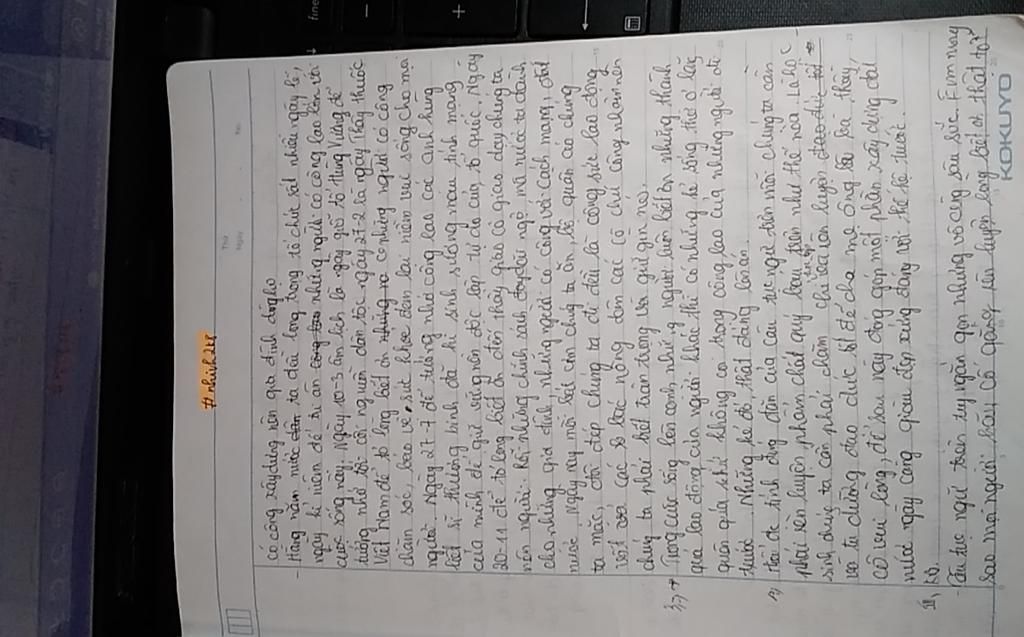 #nhinh268
có công xây dựng nên gia đình dòng họ
- Hàng năm nước ta đều long trọng tổ chức rất nhiều ngày lễ,
ngày kỉ niệm để tri ân những người có công lao lớn với
cuộc sống này; Ngày 10-3 âm lịch là ngày giỗ tổ Hùng Vương để
tưởng nhớ tới cội nguồn dân tộc ngày 27-2 là ngày Thầy thuốc
Việt Nam để tỏ lòng biết ơn những người có công
chăm sóc, bảo vệ sức khỏe đem lại niềm vui sống cho mọi
người. Ngày 27-7 để tưởng nhớ công lao các anh hùng
liệt sĩ thương binh đã hi sinh xương máu tính mạng
của mình để giữ vững nền độc lập tự do của tổ quốc. Ngày
20-11 để tỏ lòng biết ơn đến thầy giáo cô giáo dạy chúng ta
nên người. Rồi những chính sách đãi ngộ, mà nước ta dành
cho những gia đình những người có công với Cách mạng, đất
nước. Ngày nay mỗi bát cơm chúng ta ăn, bộ quần áo chúng
ta mặc, đôi dép chúng ta đi đều là công sức lao động
của các bác nông dân các cô chú công nhân nên
chúng ta phải biết trân trọng và giữ gìn nó.
Trong cuộc sống bên cạnh những người luôn biết ơn những thành
quả lao động của người khác thì có những kẻ sống thờ ơ lãng
quên quá khứ không coi trọng công lao của những người đi
trước. Những kẻ đó thật đáng lên án.
tính đúng đắn của câu tục ngữ trên mỗi chúng ta cần
phải rèn luyện phẩm chất quý báu trên như thế nào. Là học
sinh chúng ta cần phải chăm chỉ rèn luyện
và tu dưỡng đạo đức tốt để cha mẹ ông bà thầy,
cô vui lòng, để sau này đóng góp một phần xây dựng đất
nước ngày càng giàu đẹp xứng đáng với thế hệ trước.
III, KB.
- Câu tục ngữ trên tuy ngắn gọn nhưng vô cùng sâu sắc. Em mong
sao mọi người hãy cố gắng rèn luyện lòng biết ơn thật tốt
KOKUYO